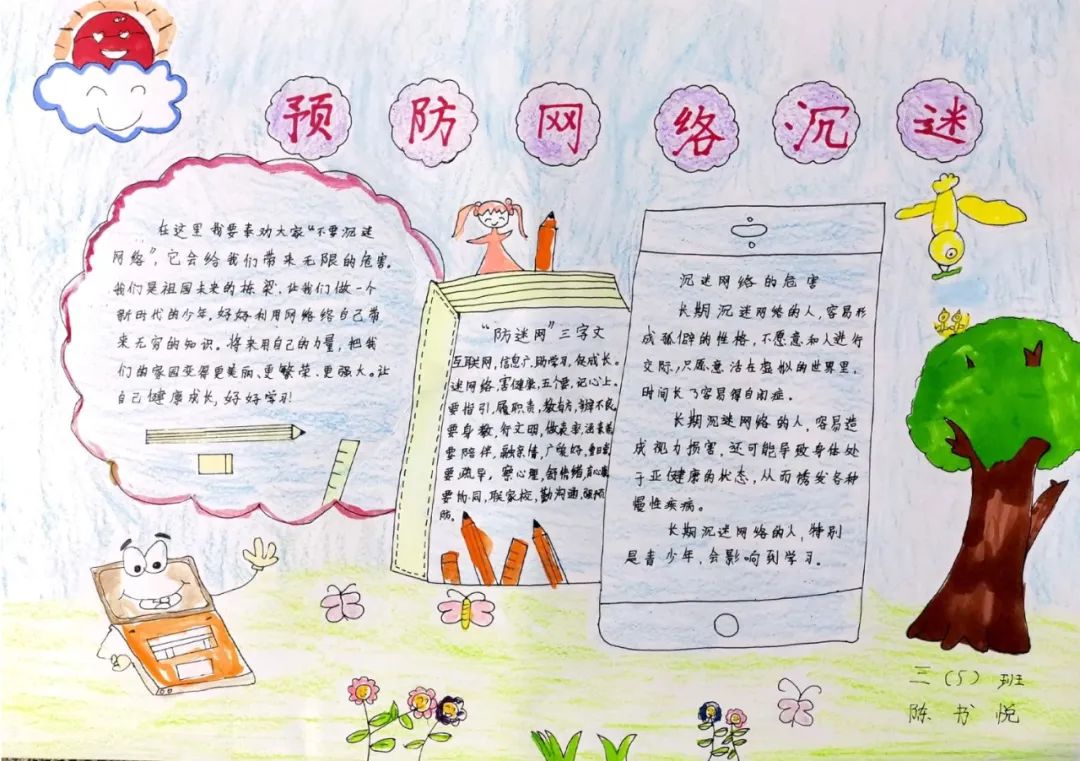 预防网络沉迷
在这里我要奉劝大家“不要沉迷
网络”，它会给我们带来无限的危害。
我们是祖国未来的栋梁，让我们做一个
新时代的少年，好好利用网络给自己带
来无穷的知识。将来用自己的力量，把我
们的家园变得更美丽、更繁荣、更强大。让
自己健康成长，好好学习！
“防迷网”三字文
互联网，信息广，助学习，促成长。
迷网络，害健康，五个要，记心上。
要指引，履职责，教有方，辨不良。
要身教，行文明，做表率，
要陪伴，融亲情，广爱好，重日常
要疏导，察心理，舒情绪，
要协同，联家校，勤沟通，强预
防。
沉迷网络的危害
长期沉迷网络的人，容易形
成孤僻的性格，不愿意和人进行
交际，只愿意活在虚拟的世界里，
时间长了容易得自闭症。
长期沉迷网络的人，容易造
成视力损害，还可能导致身体处
于亚健康的状态，从而诱发各种
慢性疾病。
长期沉迷网络的人，特别
是青少年，会影响到学习。
三（5）班
陈书悦